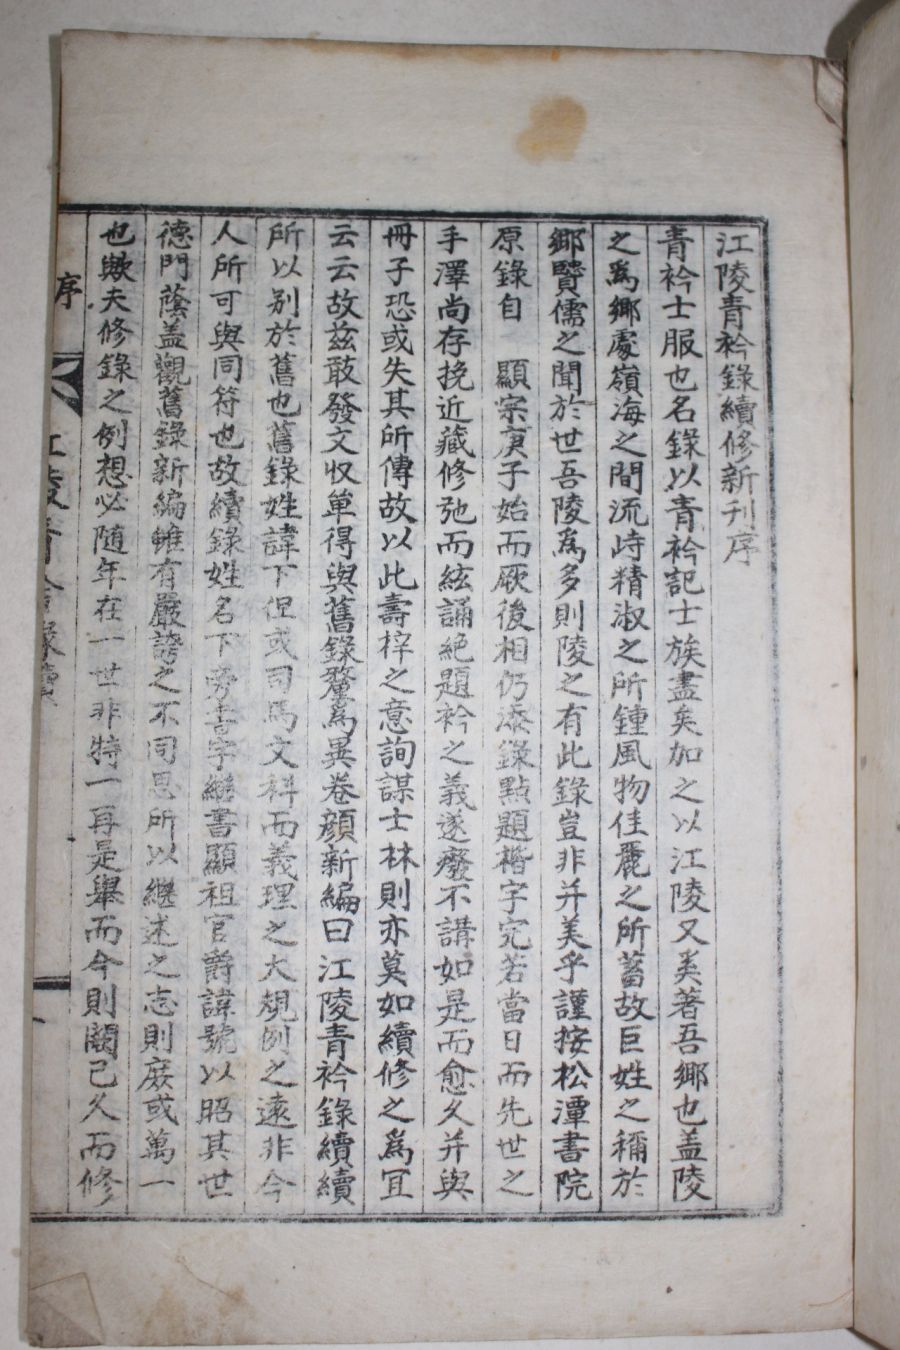 江陵青衿錄續修新刊序
青衿士服也名錄以青衿記士族盡矣加之以江陵又美著吾鄉也盖陵
之爲鄉處嶺海之間流峙精淑之所鍾風物佳麗之所蓄故巨姓之稱於
鄉賢儒之聞於世吾陵爲多則陵之有此錄豈非幷美乎謹按松潭書院
原錄自 顯宗庚子始而厥後相仍添錄點題楷字完若當日而先世之
手澤尚存挽近藏修弛而絃誦絶題衿之義遂癈不講如是而愈久幷與
冊子恐或失其所傳故以此壽梓之意詢謀士林則亦莫如續修之爲宜
云云故兹敢發文収單得與舊錄釐爲異卷顔新編曰江陵青衿錄續續
所以别於舊也舊錄姓諱下但或司馬文科而義理之大規例之遠非今
人所可與同符也故續錄姓名下旁書字繼書顯祖官爵諱號以昭其世
德門蔭盖觀舊錄新編雖有嚴誇之不同思所以繼述之志則庶或萬一
也歟夫修錄之例想必随年在一世非特一再是舉而今則闕已久而修
序
江陵青衿錄續